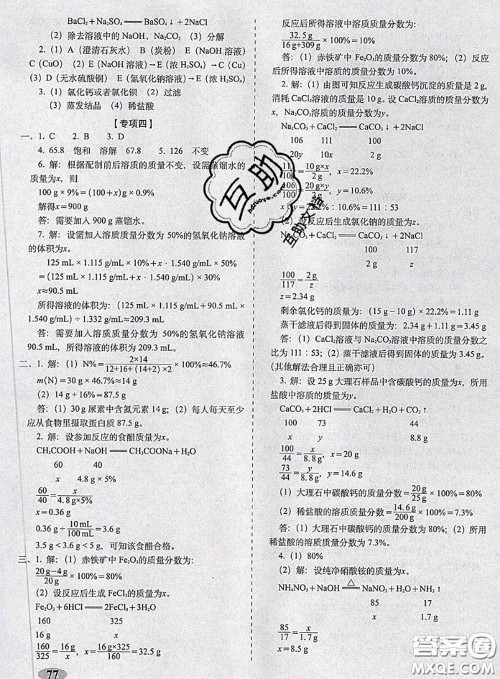 BaCl₂ + Na₂SO₄ ══ BaSO₄↓ + 2NaCl
(2) 除去溶液中的 NaOH、Na₂CO₃ (3) 分解
2. (1) A (澄清石灰水) B (炭粉) E (NaOH 溶液)
C (CuO) (2) E (NaOH 溶液)→E (浓 H₂SO₄)→C
(3) D (无水硫酸铜) E (氢氧化钠溶液)→E (浓 H₂SO₄)
3. (1) 氯化钙或者氯化钡 (2) 过滤
(3) 蒸发结晶 (4) 稀盐酸
【专项四】
一、1. C 2. B 3. D
4. 65.8 饱和 溶解 67.8 5. 126 不变
6. 解：根据配制前后溶质的质量不变，设需蒸馏水的
质量为x，则
100 g × 9% = (100 g + x) ×
解得 x = 900 g
答：需要加入 900 g 蒸馏水。
7. 解：设需加入溶质质量分数为 50%的氢氧化钠溶液
的体积为x。
125 mL × 1.115 g/mL × 10% + x × 1.540 g/mL × 50% =
(125 mL × 1.115 g/mL + x × 1.540 g/mL) × 30%
x≈90.5 mL
所得溶液的体积为：(125 mL × 1.115 g/mL + 90.5 mL ×
1.540 g/mL) ÷ 1.332 g/mL≈209.3 mL
答：需要加入溶质质量分数为 50%的氢氧化钠溶液
90.5 mL，所得溶液的体积为 209.3 mL。
二、1. 解：(1) N% = 2×14/12+16+(14+2)×2 × 100%≈46.7%
m(N) = 30 g × 46.7%≈14 g
(2) 14 g ÷ 16% = 87.5 g
答：(1) 30 g 尿素中含氮元素 14 g；(2) 每人每天至少
应从食物里摄取蛋白质 87.5 g。
2. 解：设参加反应的食醋质量为x。
CH₃COOH + NaOH ══ CH₃COONa + H₂O
60 40
x 4.8 g × 5%
60/40 = x/4.8 g×5%
x = 0.36 g
0.36 g ÷ 10 mL/100 mL = 3.6 g
3.5 g < 3.6 g < 5 g，可知该食醋合格。
三、1. 解：(1) 赤铁矿中 Fe₂O₃的质量分数为：
20 g−4 g/20 g × 100% = 80%
(2) 设反应后生成 FeCl₃的质量为x。
Fe₂O₃ + 6HCl ══ 2FeCl₃ + 3H₂O
160 325
16 g x
160/325 = 16 g/x x = 16 g×325/160 = 32.5 g
77
反应后所得溶液中溶质质量分数为：
32.5 g/16 g+309 g × 100% = 10%
答：(1) 赤铁矿中 Fe₂O₃的质量分数为 80%；(2) 反应
后所得溶液中溶质质量分数为 10%。
2. 解：(1) 由图可知反应生成碳酸钙沉淀的质量是 2 g，
消耗 CaCl₂溶液的质量是 10 g，设
Na₂CO₃ + CaCl₂ ══ CaCO₃↓ + 2NaCl
106 111 100
10 g×y 10 g×x 2 g
111/100 = 10 g×x/2 g x = 22.2%
106/100 = 10 g×y/2 g y = 21.2%
(2) 设反应后生成氯化钠的质量为z。
Na₂CO₃ + CaCl₂ ══ CaCO₃↓ + 2NaCl
100 117
2 g z
100/117 = 2 g/z
z = 2.34 g
剩余氯化钙的质量为：(15 g − 10 g) × 22.2% = 1.11 g
蒸干滤液后得到固体的质量为：2.34 g + 1.11 g = 3.45 g
答：(1) CaCl₂溶液与 Na₂CO₃溶液中溶质质量分数之
比为 111：53；(2) 蒸干滤液后得到固体的质量为 3.45 g。
(其他解法合理且正确亦可)
3. 解：设 25 g 大理石样品中含碳酸钙的质量为x，所用
盐酸中溶质的质量为y。
CaCO₃ + 2HCl ══ CaCl₂ + H₂O + CO₂↑
100 73 44
x y 8.8 g
100/44 = x/8.8 g x = 20 g
73/44 = y/8.8 g y = 14.6 g
(1) 大理石中碳酸钙的质量分数 = 20 g/25 g × 100% = 80%
(2) 稀盐酸的溶质质量分数 = 14.6 g/200 g × 100% = 7.3%
答：(1) 大理石中碳酸钙的质量分数为 80%；(2) 所用
稀盐酸的溶质质量分数为 7.3%。
4. (1) 80%
(2) 解：设纯净硝酸铵的质量为x。
NH₄NO₃ + NaOH ══△══ NaNO₃ + H₂O + NH₃↑
80 17
x 0.85 g
80/17 = x/0.85 g
互助
互助文择
答案圈
MXQE.COM